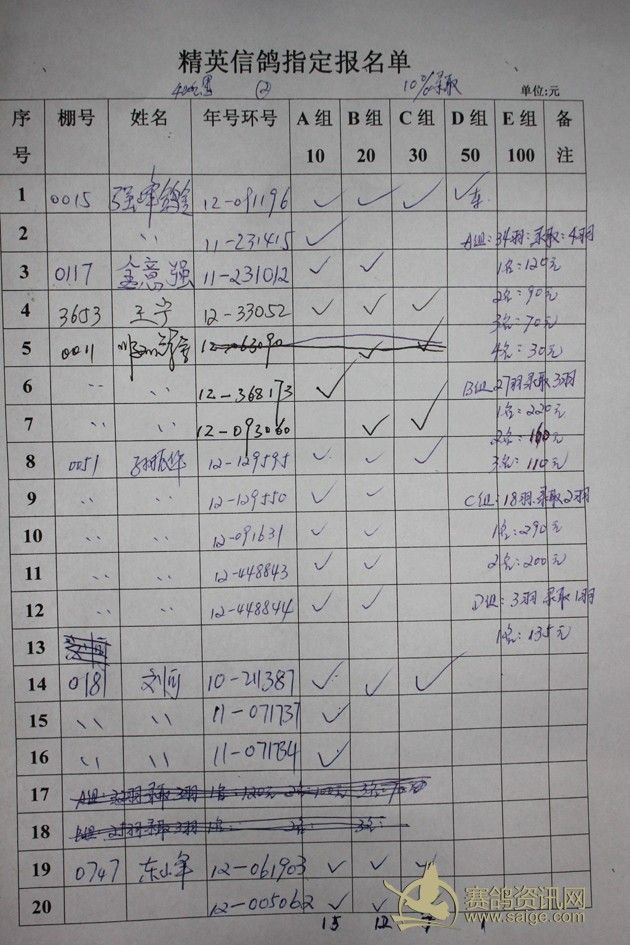 精英信鸽指定报名单
② 10%录取
单位:元
序号 棚号 姓名 年号环号 A组10 B组20 C组30 D组50 E组100 备注
1 0015 12-091196 ✓ ✓ ✓ ✓
2 〃 11-231415 ✓ A组:34羽:录取:4羽
3 0117 金意强 11-231012 ✓ ✓ 1名:120元
4 3653 王宇 12-33052 ✓ ✓ ✓ 2名:90元
3名:70元
5 0011 12-063090 ✓ ✓ 4名:30元
6 〃 〃 12-368173 ✓ B组27羽录取3羽
7 〃 〃 12-093060 ✓ ✓ 1名:220元
2名:160元
8 0051 12-129595 ✓ ✓ ✓ 3名:110元
9 〃 〃 12-129550 ✓ ✓ C组:18羽录取2羽
10 〃 〃 12-091631 ✓ ✓ 1名:290元
11 〃 〃 12-448843 ✓ ✓ 2名:200元
12 〃 〃 12-448844 ✓ ✓ D组:3羽录取1羽
13 1名:135元
14 0181 10-211387 ✓ ✓ ✓
15 〃 〃 11-071737 ✓
16 〃 〃 11-071734 ✓
17
18
19 0747 12-061903 ✓ ✓ ✓
20 12-005062 ✓ ✓
15 12 7 1
赛鸽资讯网
www.saige.com